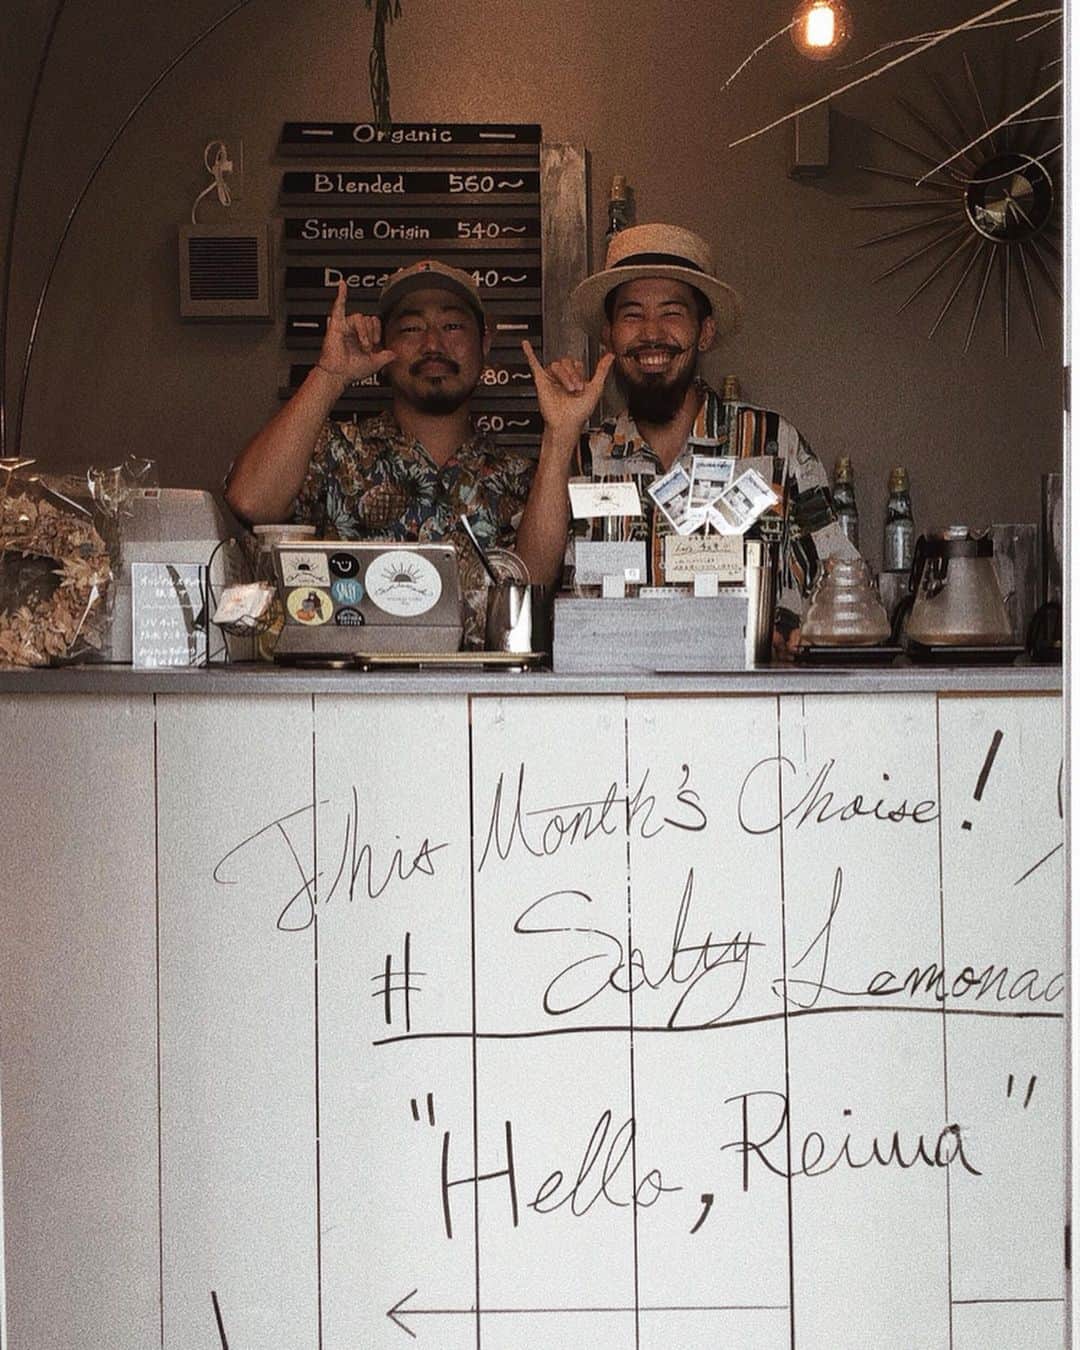 Organic
Blended 560~
Single Origin 540~
Deca 40~
80~
60~
This Month's Choise!
# Salty Lemonad
"Hello, Reiwa"